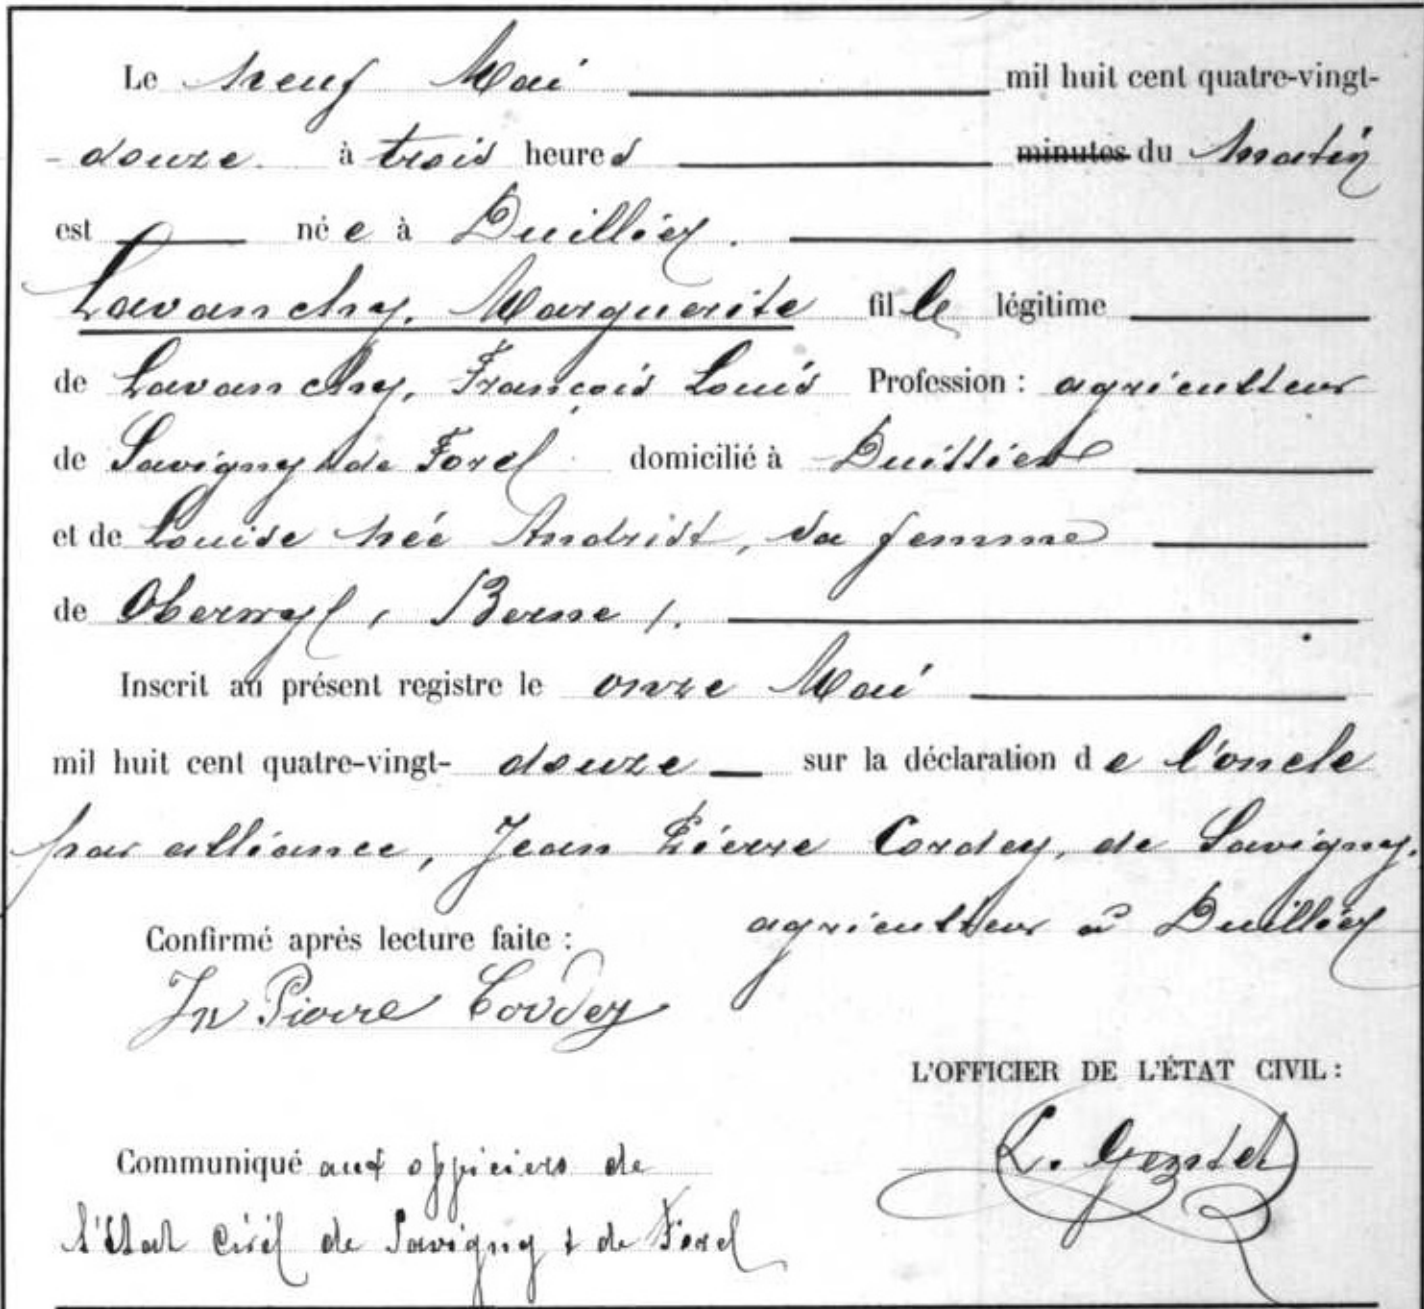 Le neuf Mai mil huit cent quatre-vingt-
-douze. à trois heures minutes du matin
est née à Duillier.
Lavanchy, Marguerite fille légitime
de Lavanchy, François Louis Profession : agriculteur
de Savigny & de Forel domicilié à Duillier
et de Louise née Andrist, sa femme
de Oberwyl (Berne).
Inscrit au présent registre le onze Mai
mil huit cent quatre-vingt- douze sur la déclaration de l'oncle
par alliance, Jean Pierre Cordey, de Savigny,
agriculteur à Duillier
Confirmé après lecture faite :
Jn Pierre Cordey
L'OFFICIER DE L'ÉTAT CIVIL :
Communiqué aux officiers de
l'état civil de Savigny & de Forel